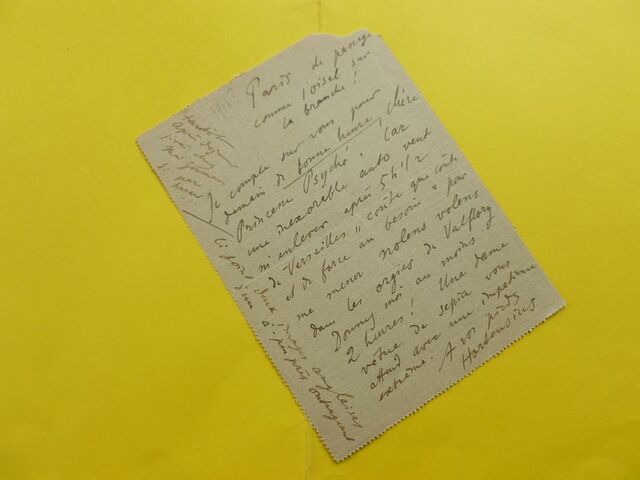 Paris de passage
comme l'oisel sur
la branche!
Je compte sur vous pour
demain de bonne heure, chère
Princesse Psyché! Car
une inexorable auto vent
m'enlever après 5h 1/2
de Versailles "coûte que coûte
et de force au besoin" pour
me mener nolens volens
dans les orgies de Valflory
Donnez moi au moins
2 heures! Une dame
vêtue de sepia vous
attend avec une impatience
extrême. A vos pieds
Hortensius
1912
Ci joint deux images anglaises
d'un à peu près outrageant